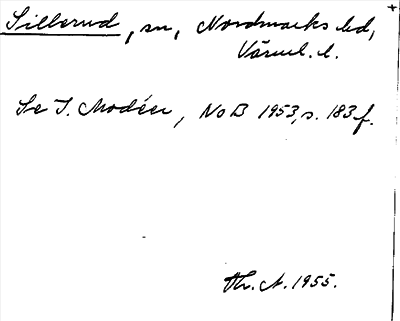 Sillerud, sn, Nordmarks hd,
Värml. l.
Se I. Modéer, NoB 1953, s. 183 f.
Hr. A. 1955.